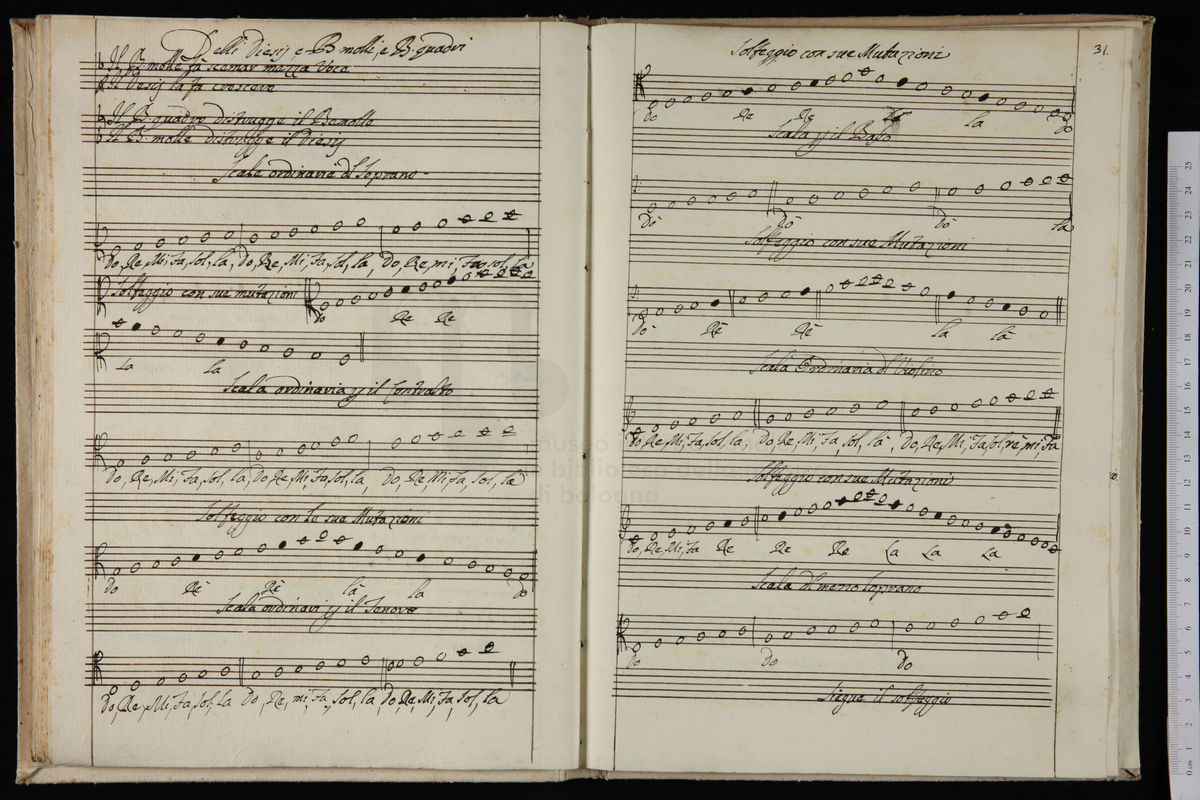 Delli Diesis, e B molli, e B. quadri
Il B molle fa scemar mezza Voce
Il Diesis la fa crescere
Il B quadro distrugge il Bemolle
Il B molle distrugge il Diesis
Scale ordinarie dl Soprano
Do, Re, Mi, Fa, Sol, La, Do, Re, Mi, Fa, Sol, la, Do, Re, mi, Fa, sol, la
Solfeggio con sue mutazioni
Do Re Re
La la
Scala ordinaria il Contralto
Do, Re, Mi, Fa, Sol, la, Do Re Mi Fa, Sol, la, Do, Re Mi Fa, Sol, la
Solfeggio con le sue Mutazioni
Do Rè Rè là la Do
Scala ordinari il Tenore
Do, Re, Mi, Fa, Sol, La Do, Re, mi, Fa, Sol, la Do, Re, Mi, Fa, Sol, la
Solfeggio con sue Mutazioni
31.
Do Re Re la Do
Scala il Basso
Dò Dò Dò La
Solfeggio con sue Mutazioni
Dò Rè Rè la là
Scala Ordinaria dl Violino
Do, Re, Mi, Fa, Sol, la, Do, Re, Mi, Fa, Sol, là, Do, Re, Mi, Fa, Sol, rè, mi, Fa
Solfeggio con sue Mutazioni
Do, Re, Mi, Fa Re Re Re La La La
Scala dl mezzo Soprano
Do Do Do
Segue il solfeggio
museo
biblioteca della
di bologna
0 cm 1 2 3 4 5 6 7 8 9 10 11 12 13 14 15 16 17 18 19 20 21 22 23 24 25